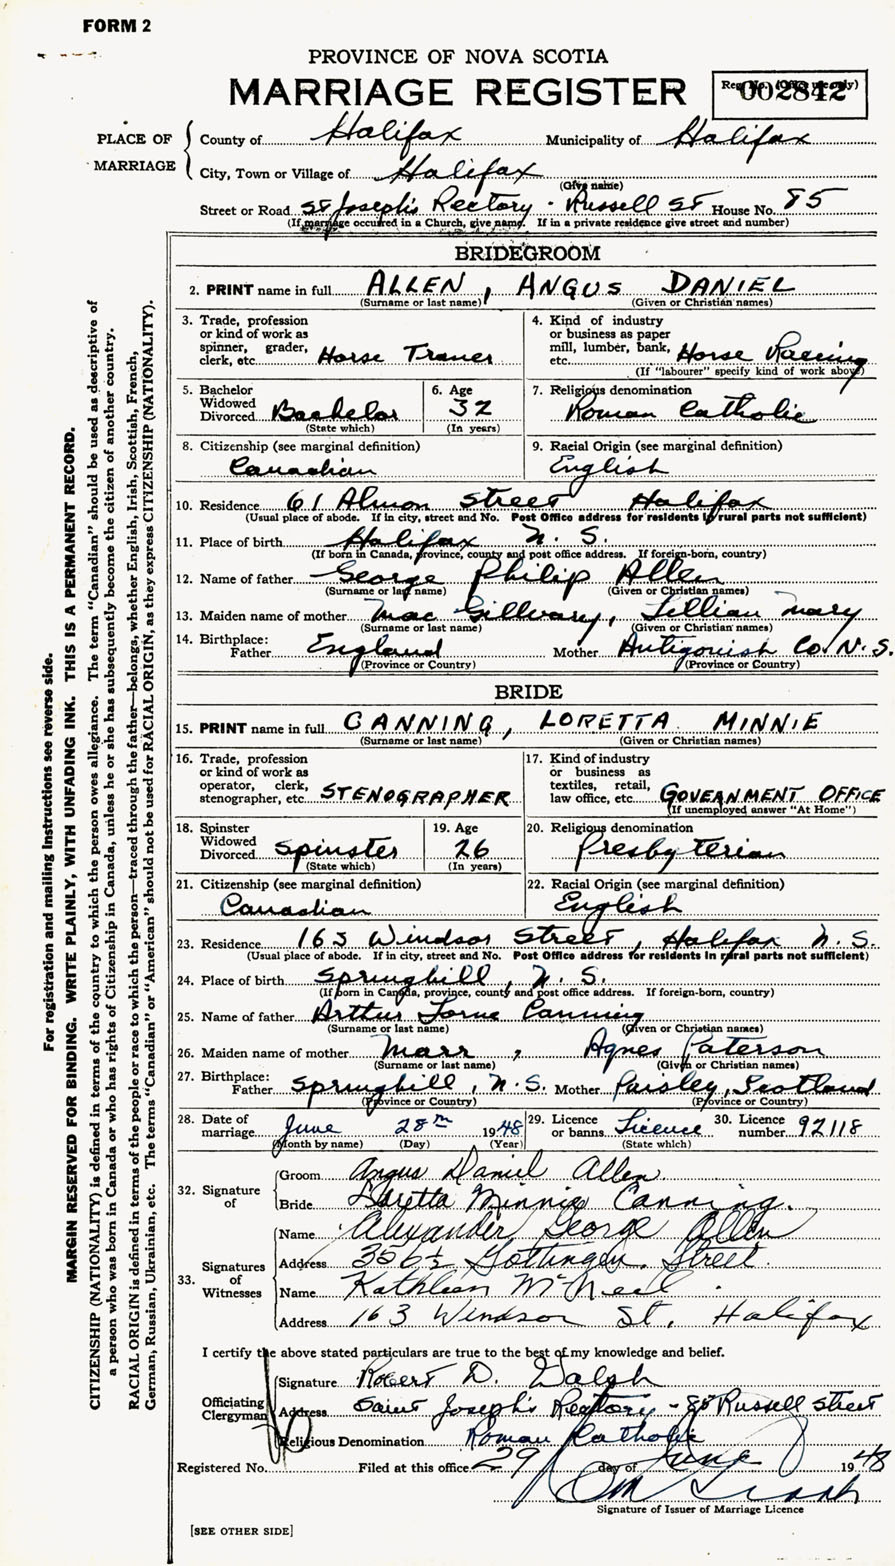 FORM 2
PROVINCE OF NOVA SCOTIA
MARRIAGE REGISTER
Reg. No. (Office use only)
002842
PLACE OF MARRIAGE
County of Halifax Municipality of Halifax
City, Town or Village of Halifax
(Give name)
Street or Road St Joseph's Rectory - Russell St House No. 85
(If marriage occurred in a Church, give name. If in a private residence give street and number)
BRIDEGROOM
2. PRINT name in full ALLEN, ANGUS DANIEL
(Surname or last name) (Given or Christian names)
3. Trade, profession or kind of work as spinner, grader, clerk, etc. Horse Traner
4. Kind of industry or business as paper mill, lumber, bank, etc. Horse Raceing
(If "labourer" specify kind of work above)
5. Bachelor Widowed Divorced Bachelor
(State which)
6. Age 32
(In years)
7. Religious denomination
Roman Catholic
8. Citizenship (see marginal definition)
Canadian
9. Racial Origin (see marginal definition)
English
10. Residence 61 Almon Street Halifax
(Usual place of abode. If in city, street and No. Post Office address for residents in rural parts not sufficient)
11. Place of birth Halifax N. S.
(If born in Canada, province, county and post office address. If foreign-born, country)
12. Name of father George Philip Allen
(Surname or last name) (Given or Christian names)
13. Maiden name of mother Mac Gillvary, Lillian Mary
(Surname or last name) (Given or Christian names)
14. Birthplace:
Father England Mother Antigonish Co. N. S.
(Province or Country) (Province or Country)
BRIDE
15. PRINT name in full CANNING, LORETTA MINNIE
(Surname or last name) (Given or Christian names)
16. Trade, profession or kind of work as operator, clerk, stenographer, etc. STENOGRAPHER
17. Kind of industry or business as textiles, retail, law office, etc. GOVERNMENT OFFICE
(If unemployed answer "At Home")
18. Spinster Widowed Divorced Spinster
(State which)
19. Age 26
(In years)
20. Religious denomination
Presbyterian
21. Citizenship (see marginal definition)
Canadian
22. Racial Origin (see marginal definition)
English
23. Residence 163 Windsor Street, Halifax N. S.
(Usual place of abode. If in city, street and No. Post Office address for residents in rural parts not sufficient)
24. Place of birth Springhill, N. S.
(If born in Canada, province, county and post office address. If foreign-born, country)
25. Name of father Arthur Lorne Canning
(Surname or last name) (Given or Christian names)
26. Maiden name of mother Marr, Agnes Paterson
(Surname or last name) (Given or Christian names)
27. Birthplace:
Father Springhill, N. S. Mother Paisley, Scotland
(Province or Country) (Province or Country)
28. Date of marriage June 28th 1948
(Month by name) (Day) (Year)
29. Licence or banns Licence
(State which)
30. Licence number 92118
32. Signature of
Groom Angus Daniel Allen
Bride Loretta Minnie Canning.
33. Signatures of Witnesses
Name Alexander George Allen
Address 356½ Gottingen Street
Name Kathleen McNeil
Address 163 Windsor St. Halifax
I certify the above stated particulars are true to the best of my knowledge and belief.
Officiating Clergyman
Signature Robert D. Walsh
Address Saint Joseph's Rectory - 85 Russell Street
Religious Denomination Roman Catholic
Registered No. Filed at this office 29 day of June 1948
Signature of Issuer of Marriage Licence
[SEE OTHER SIDE]
For registration and mailing instructions see reverse side.
MARGIN RESERVED FOR BINDING. WRITE PLAINLY, WITH UNFADING INK. THIS IS A PERMANENT RECORD.
CITIZENSHIP (NATIONALITY) is defined in terms of the country to which the person owes allegiance. The term "Canadian" should be used as descriptive of
a person who was born in Canada or who has rights of Citizenship in Canada, unless he or she has subsequently become the citizen of another country.
RACIAL ORIGIN is defined in terms of the people or race to which the person—traced through the father—belongs, whether English, Irish, Scottish, French,
German, Russian, Ukrainian, etc. The terms "Canadian" or "American" should not be used for RACIAL ORIGIN, as they express CITIZENSHIP (NATIONALITY).